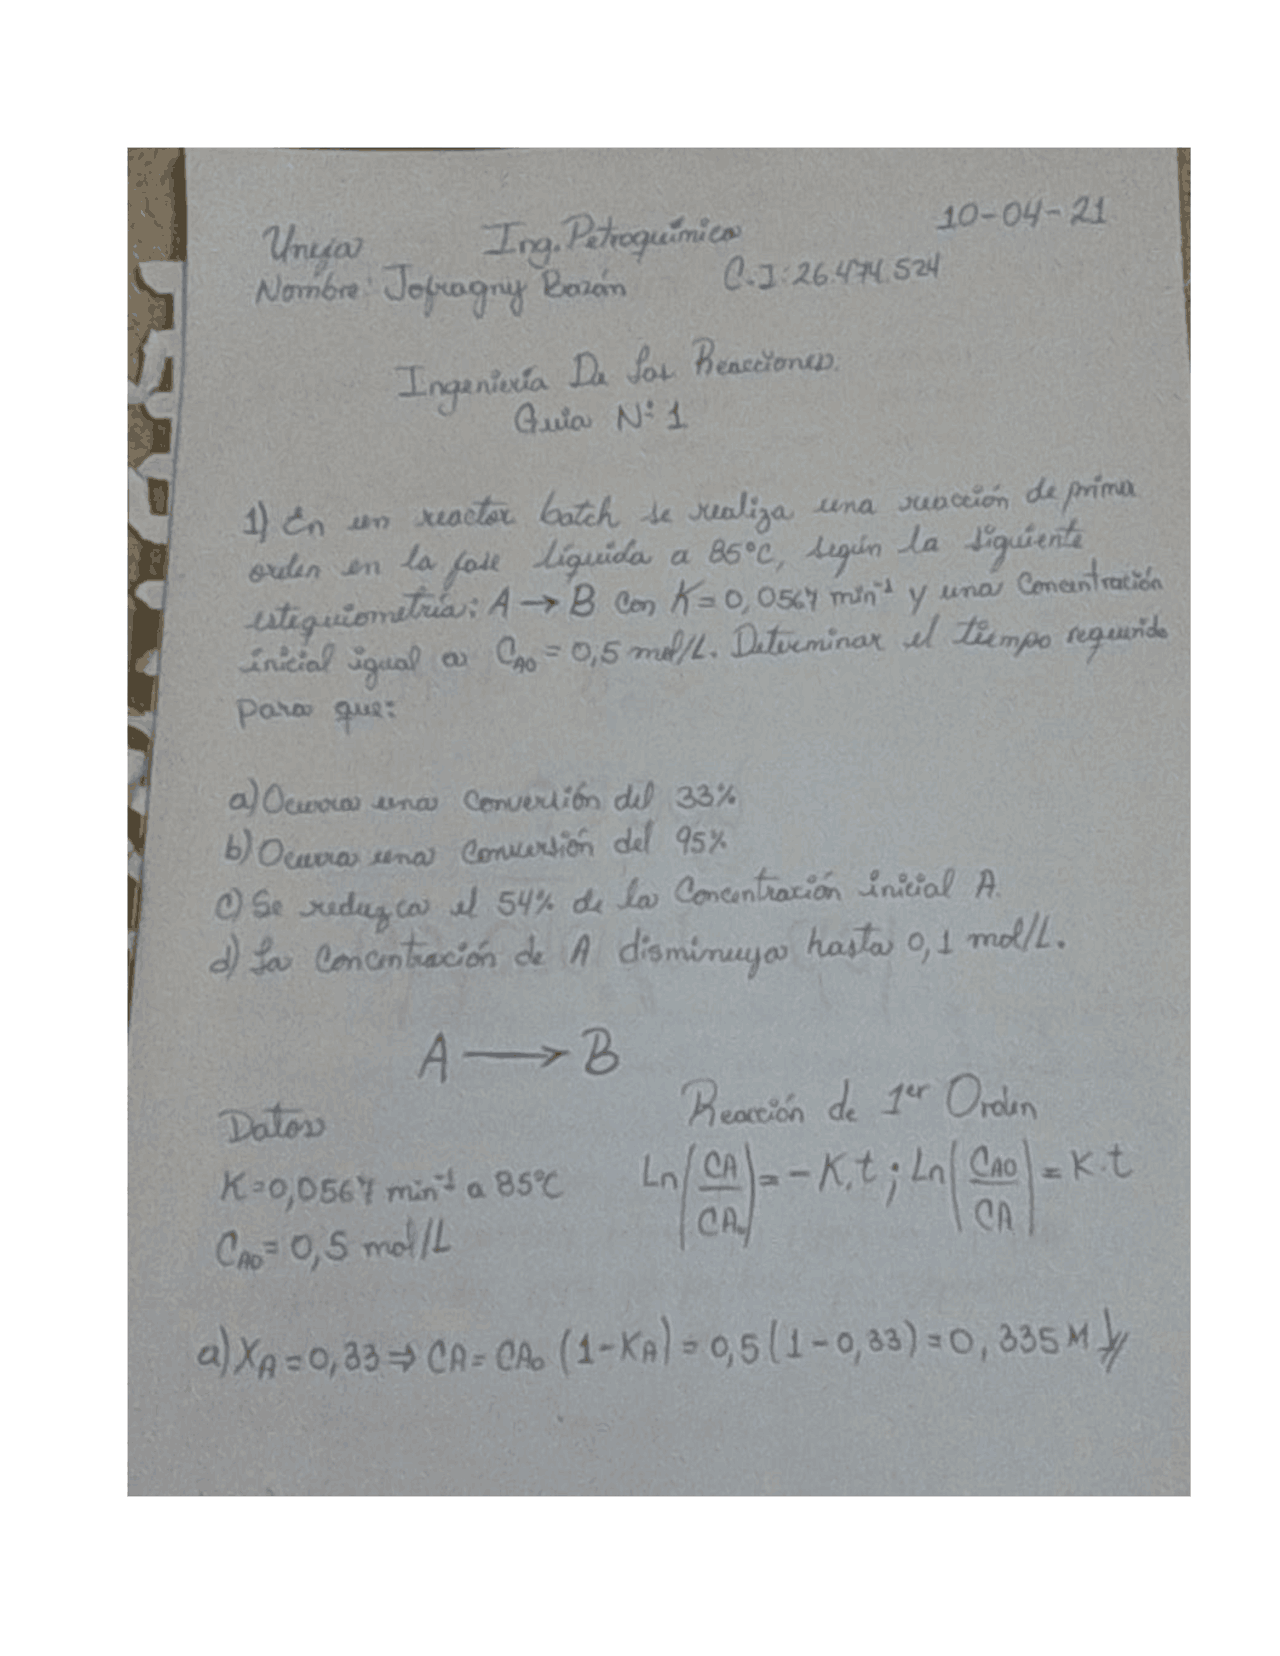 Uneja Ing. Petroquímica 10-04-21
Nombre: Jofragny Bazán C.I: 26.474.524
Ingeniería De Las Reacciones.
Guia N° 1
1) En un reactor batch se realiza una reacción de prima
orden en la fase líquida a 85°C, según la siguiente
estequiometría: A → B con K=0,0567 min⁻¹ y una Concentración
inicial igual a C_A0 = 0,5 mol/L. Determinar el tiempo requerido
para que:
a) Ocurra una conversión del 33%
b) Ocurra una conversión del 95%
c) Se reduzca el 54% de la Concentración inicial A.
d) La concentración de A disminuya hasta 0,1 mol/L.
A → B
Datos Reacción de 1er Orden
K=0,0567 min⁻¹ a 85°C Ln(CA/CA₀) = -K.t ; Ln(CAO/CA) = K.t
C_A0 = 0,5 mol/L
a) X_A = 0,33 ⇒ CA = CA₀ (1-XA) = 0,5(1-0,33) = 0,335 M